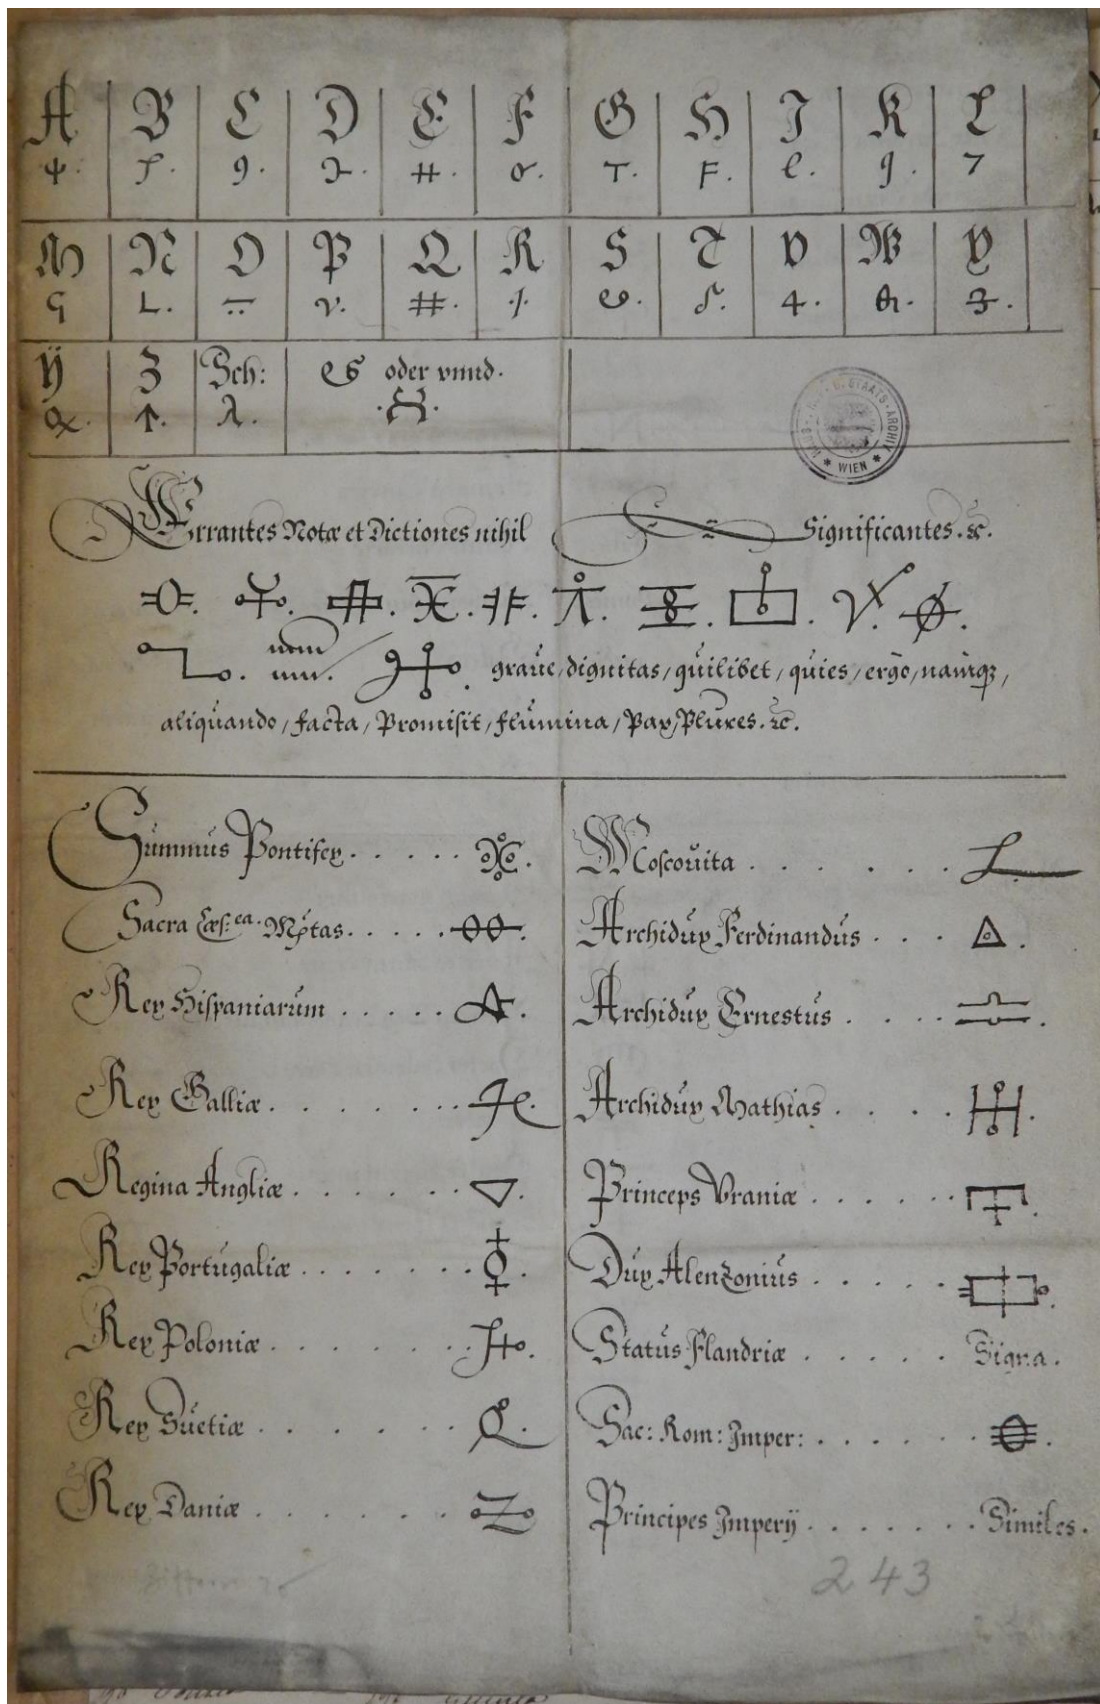 A B C D E F G H I K L
M N O P Q R S T V W Y
Ÿ Z Sch: es oder vnnd.
HAUS-, HOF- U. STAATS-ARCHIV WIEN
Errantes Notæ et Dictiones nihil Significantes. &c.
nem
num. graue / dignitas / quilibet / quies / ergo / namq;,
aliquando / facta / Promisit / flumina / Pax / Plures. &c.
Summus Pontifex.
Sacra Cæs: ca. Mṫas.
Rex Hispaniarum
Rex Galliæ.
Regina Angliæ.
Rex Portugaliæ
Rex Poloniæ
Rex Suetiæ
Rex Daniæ
Moscouita
Archidux Ferdinandus
Archidux Ernestus
Archidux Mathias
Princeps Vraniæ
Dux Alenzonius
Status Flandriæ Signa.
Sac: Rom: Imper:
Principes Imperÿ Similes.
243